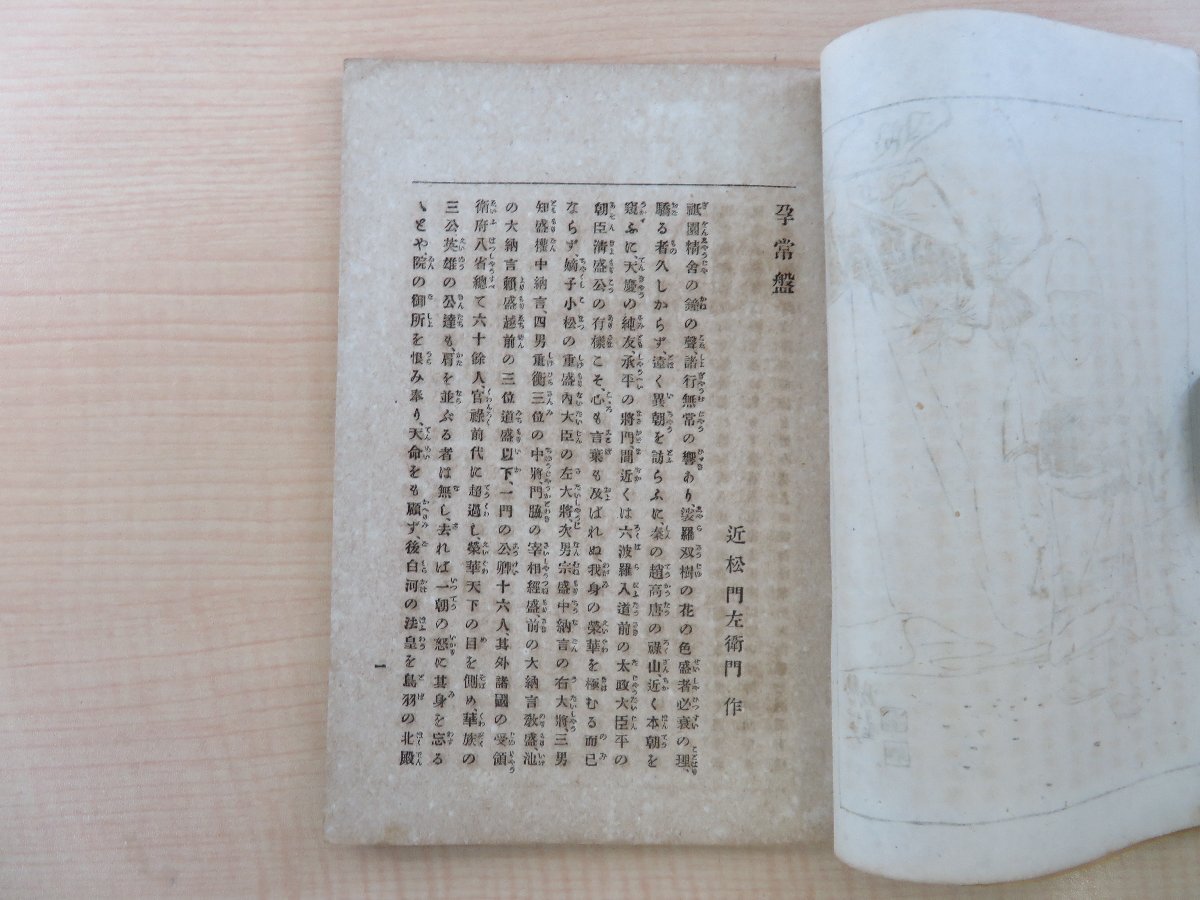 孕常盤
近松門左衛門 作
祇園精舍の鐘の聲、諸行無常の響あり娑羅双樹の花の色盛者必衰の理、
驕る者久しからず、遠く異朝を訪らふに、秦の趙高唐の祿山近く本朝を
窺ふに天慶の純友、承平の將門、間近くは六波羅入道前の太政大臣平の
朝臣淸盛公の有樣こそ、心も言葉も及ばれぬ我身の榮華を極むる而已
ならず、嫡子小松の重盛內大臣の左大將、次男宗盛中納言の右大將、三男
知盛權中納言、四男重衡三位の中將、門脇の宰相經盛前の大納言敎盛、池
の大納言賴盛越前の三位道盛以下、一門の公卿十六人、其外諸國の受領
衞府八省總て六十餘人、官祿前代に超過し、榮華天下の目を側め、華族の
三公英雄の公達も、肩を並ぶる者は無し、去れば一朝の怒に其身を忘る
ゝとや、院の御所を恨み奉り、天命をも顧ず、後白河の法皇を鳥羽の北殿
一